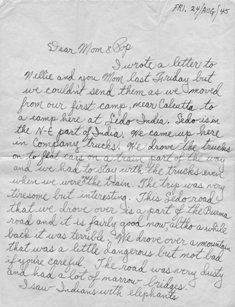 FRI. 24/AUG/45
Dear Mom & Pop
I wrote a letter to
Nellie and you Mom last Friday but
we couldn't send them as we moved
from our first camp, near Calcutta to
a camp here at Ledo India. Ledo is in
the N-E part of India. We came up here
in Company trucks. We drove the trucks
on to flat cars on a train part of the way
and we had to stay with the trucks even
when we were the train. The trip was very
tiresome but interesting. This Ledo road
that we drove over is a part of the Burma
road and it is fairly good now, altho awhile
back it was terible. We drove over a mountain
that was a little dangerous but not bad
if you're careful. The road was very dusty
and had a lot of narrow bridges.
I saw Indians with elephants